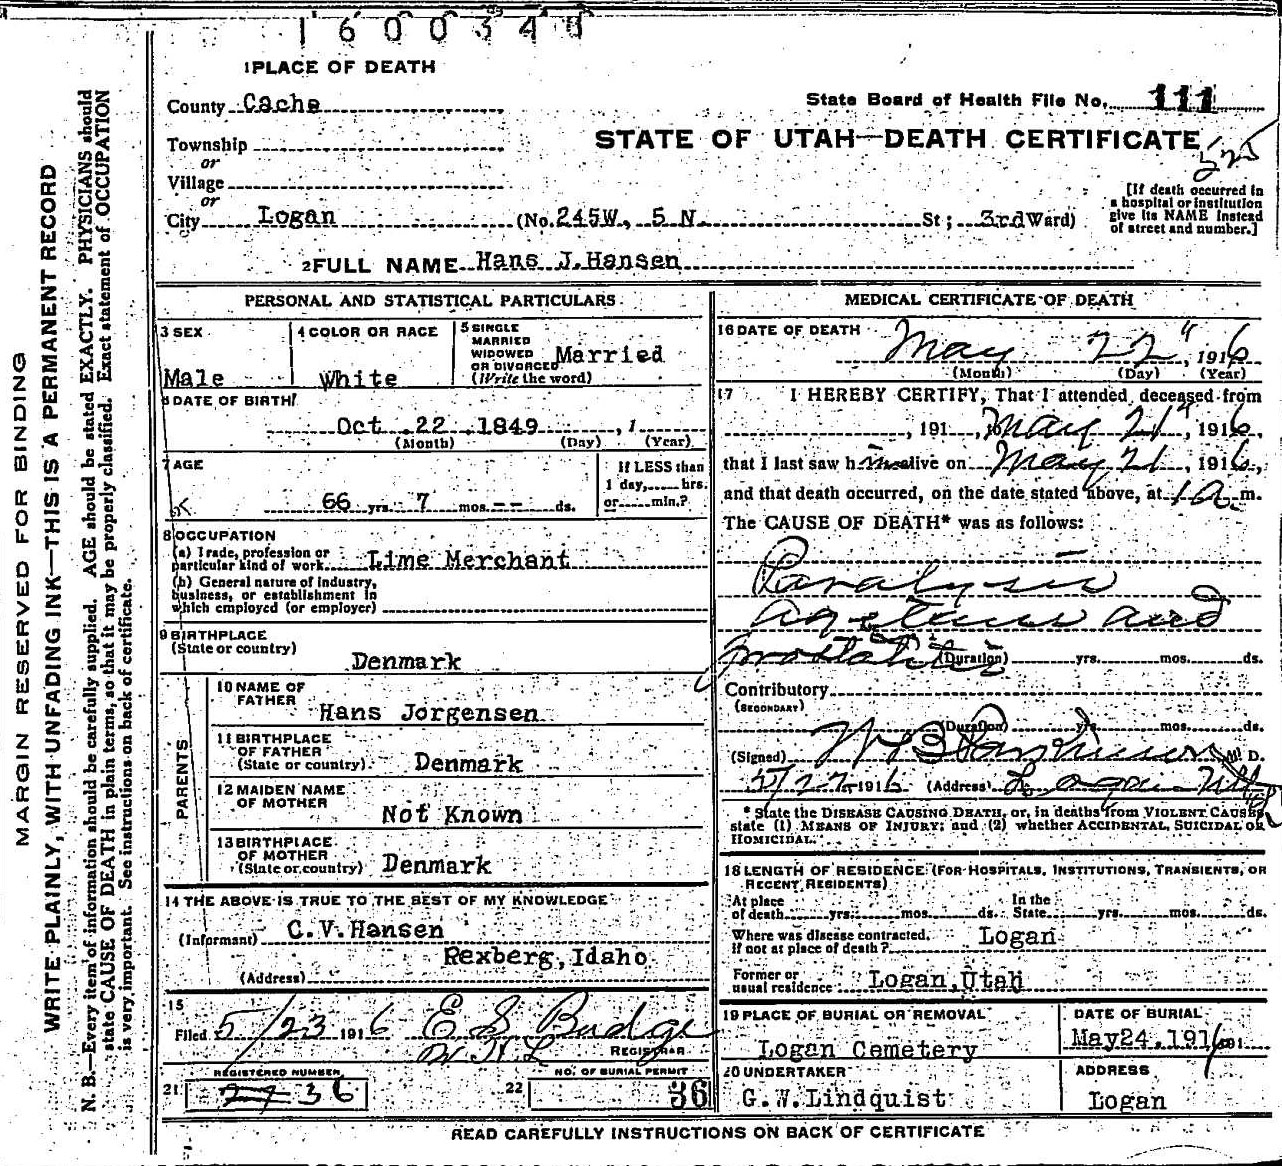 1600340
1 PLACE OF DEATH
County Cache
State Board of Health File No. 111
Township
STATE OF UTAH—DEATH CERTIFICATE
525
or
Village
or
City Logan (No. 245W, 5 N. St; 3rd Ward)
[If death occurred in
a hospital or institution
give its NAME instead
of street and number.]
2 FULL NAME Hans J. Hansen
PERSONAL AND STATISTICAL PARTICULARS
3 SEX
Male
4 COLOR OR RACE
White
5 SINGLE
MARRIED
WIDOWED
OR DIVORCED
(Write the word)
Married
6 DATE OF BIRTH
Oct 22 1849, 1
(Month) (Day) (Year)
7 AGE
66 yrs. 7 mos. -- ds.
If LESS than
1 day, hrs.
or min.?
8 OCCUPATION
(a) Trade, profession or
particular kind of work Lime Merchant
(b) General nature of industry,
business, or establishment in
which employed (or employer)
9 BIRTHPLACE
(State or country)
Denmark
PARENTS
10 NAME OF
FATHER
Hans Jorgensen
11 BIRTHPLACE
OF FATHER
(State or country) Denmark
12 MAIDEN NAME
OF MOTHER
Not Known
13 BIRTHPLACE
OF MOTHER
(State or country) Denmark
14 THE ABOVE IS TRUE TO THE BEST OF MY KNOWLEDGE
(Informant) C.V. Hansen
Rexberg, Idaho
(Address)
15
Filed 5/23 1916 E S Budge
W. N. L REGISTRAR
REGISTERED NUMBER
21 27 36
NO. OF BURIAL PERMIT
22 36
MEDICAL CERTIFICATE OF DEATH
16 DATE OF DEATH
May 22", 1916
(Month) (Day) (Year)
17 I HEREBY CERTIFY, That I attended deceased from
, 191 , to May 21", 1916,
that I last saw him alive on May 21, 1916,
and that death occurred, on the date stated above, at 1 a. m.
The CAUSE OF DEATH* was as follows:
Paralysis
agetans and
prostatitis
(Duration) yrs. mos. ds.
Contributory
(SECONDARY)
(Duration) yrs. mos. ds.
(Signed) M. D.
5/22 1916 (Address) Logan Utah
* State the DISEASE CAUSING DEATH, or, in deaths from VIOLENT CAUSES,
state (1) MEANS OF INJURY; and (2) whether ACCIDENTAL, SUICIDAL OR
HOMICIDAL.
18 LENGTH OF RESIDENCE (FOR HOSPITALS, INSTITUTIONS, TRANSIENTS, OR
RECENT RESIDENTS)
At place In the
of death yrs. mos. ds. State yrs. mos. ds.
Where was disease contracted,
if not at place of death? Logan
Former or
usual residence Logan, Utah
19 PLACE OF BURIAL OR REMOVAL
Logan Cemetery
DATE OF BURIAL
May 24, 1916 191
20 UNDERTAKER
G.W. Lindquist
ADDRESS
Logan
READ CAREFULLY INSTRUCTIONS ON BACK OF CERTIFICATE
MARGIN RESERVED FOR BINDING
WRITE PLAINLY, WITH UNFADING INK—THIS IS A PERMANENT RECORD
N. B.—Every item of information should be carefully supplied. AGE should be stated EXACTLY. PHYSICIANS should
state CAUSE OF DEATH in plain terms, so that it may be properly classified. Exact statement of OCCUPATION
is very important. See instructions on back of certificate.